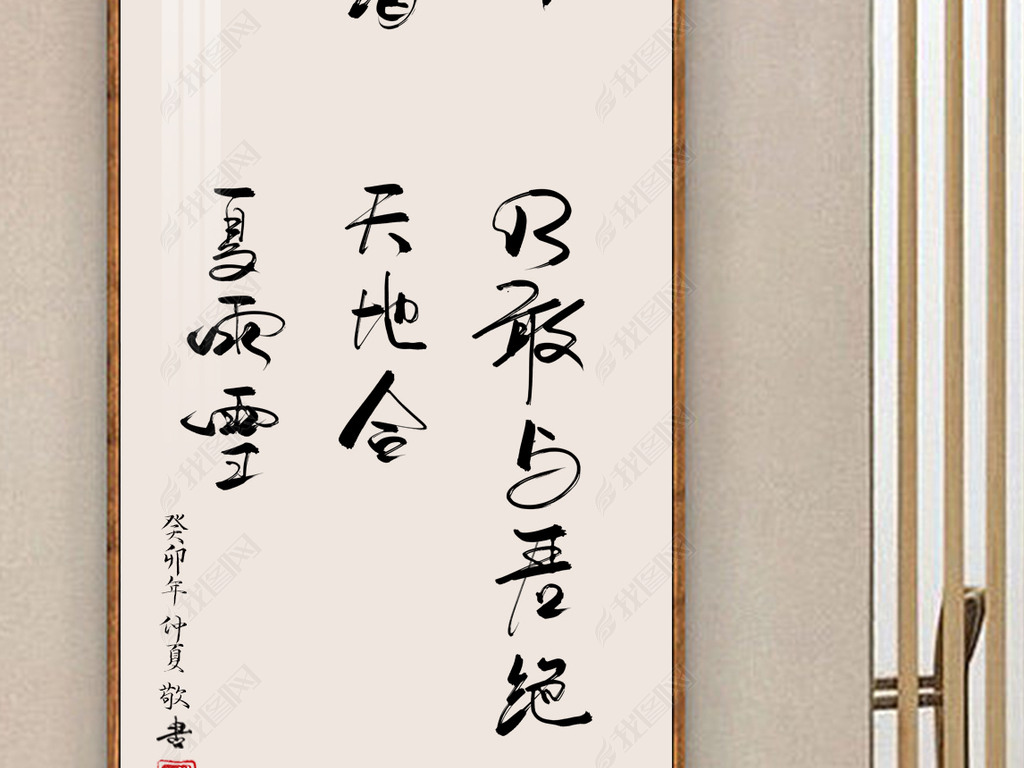 乃敢与君绝
天地合
夏雨雪
癸卯年仲夏敬書
找图网